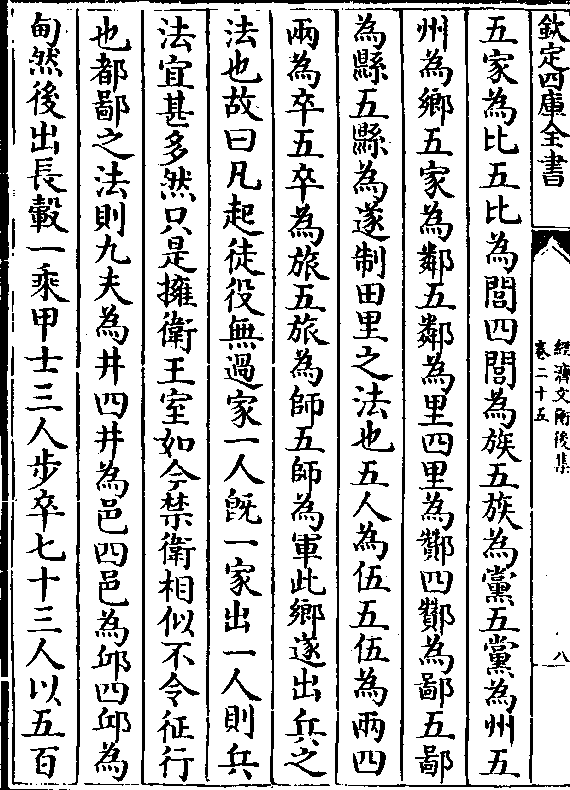 欽定四庫全書
經濟文衡後集
卷二十五
八
五家為比五比為閭四閭為族五族為黨五黨為州五
州為鄉五家為鄰五鄰為里四里為酇四酇為鄙五鄙
為縣五縣為遂制田里之法也五人為伍五伍為兩四
兩為卒五卒為旅五旅為師五師為軍此鄉遂出兵之
法也故曰凡起徒役無過家一人既一家出一人則兵
法宜甚多然只是擁衛王室如今禁衛相似不令征行
也都鄙之法則九夫為井四井為邑四邑為邱四邱為
甸然後出長轂一乘甲士三人步卒七十三人以五百